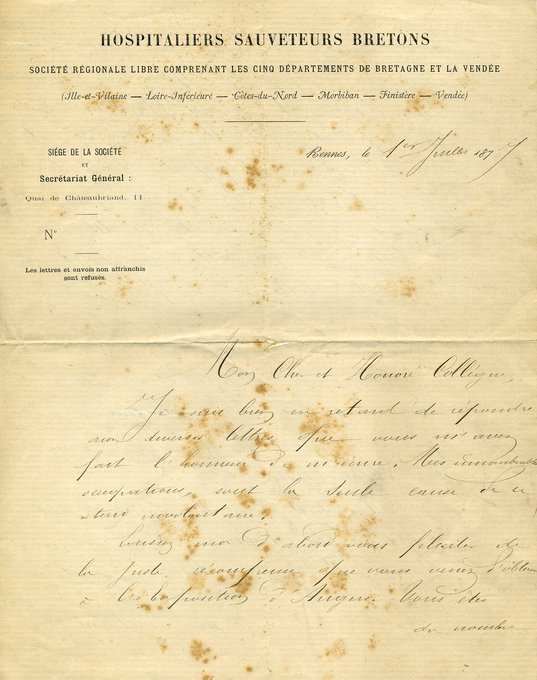 HOSPITALIERS SAUVETEURS BRETONS
SOCIÉTÉ RÉGIONALE LIBRE COMPRENANT LES CINQ DÉPARTEMENTS DE BRETAGNE ET LA VENDÉE
(Ille-et-Vilaine — Loire-Inférieure — Côtes-du-Nord — Morbihan — Finistère — Vendée)
SIÉGE DE LA SOCIÉTÉ
ET
Secrétariat Général :
Quai de Châteaubriand, 11
N°
Les lettres et envois non affranchis
sont refusés.
Rennes, le 1er Juillet 1877
Mon Cher et Honoré Collègue,
Je suis bien en retard de répondre
aux diverses lettres que vous m'avez
fait l'honneur de m'écrire. Mes innombrables
occupations, sont la seule cause de ce
retard involontaire.
Laissez moi d'abord vous féliciter de
la juste récompense que vous venez d'obtenir
à l'Exposition d'Angers. Vous êtes
du nombre